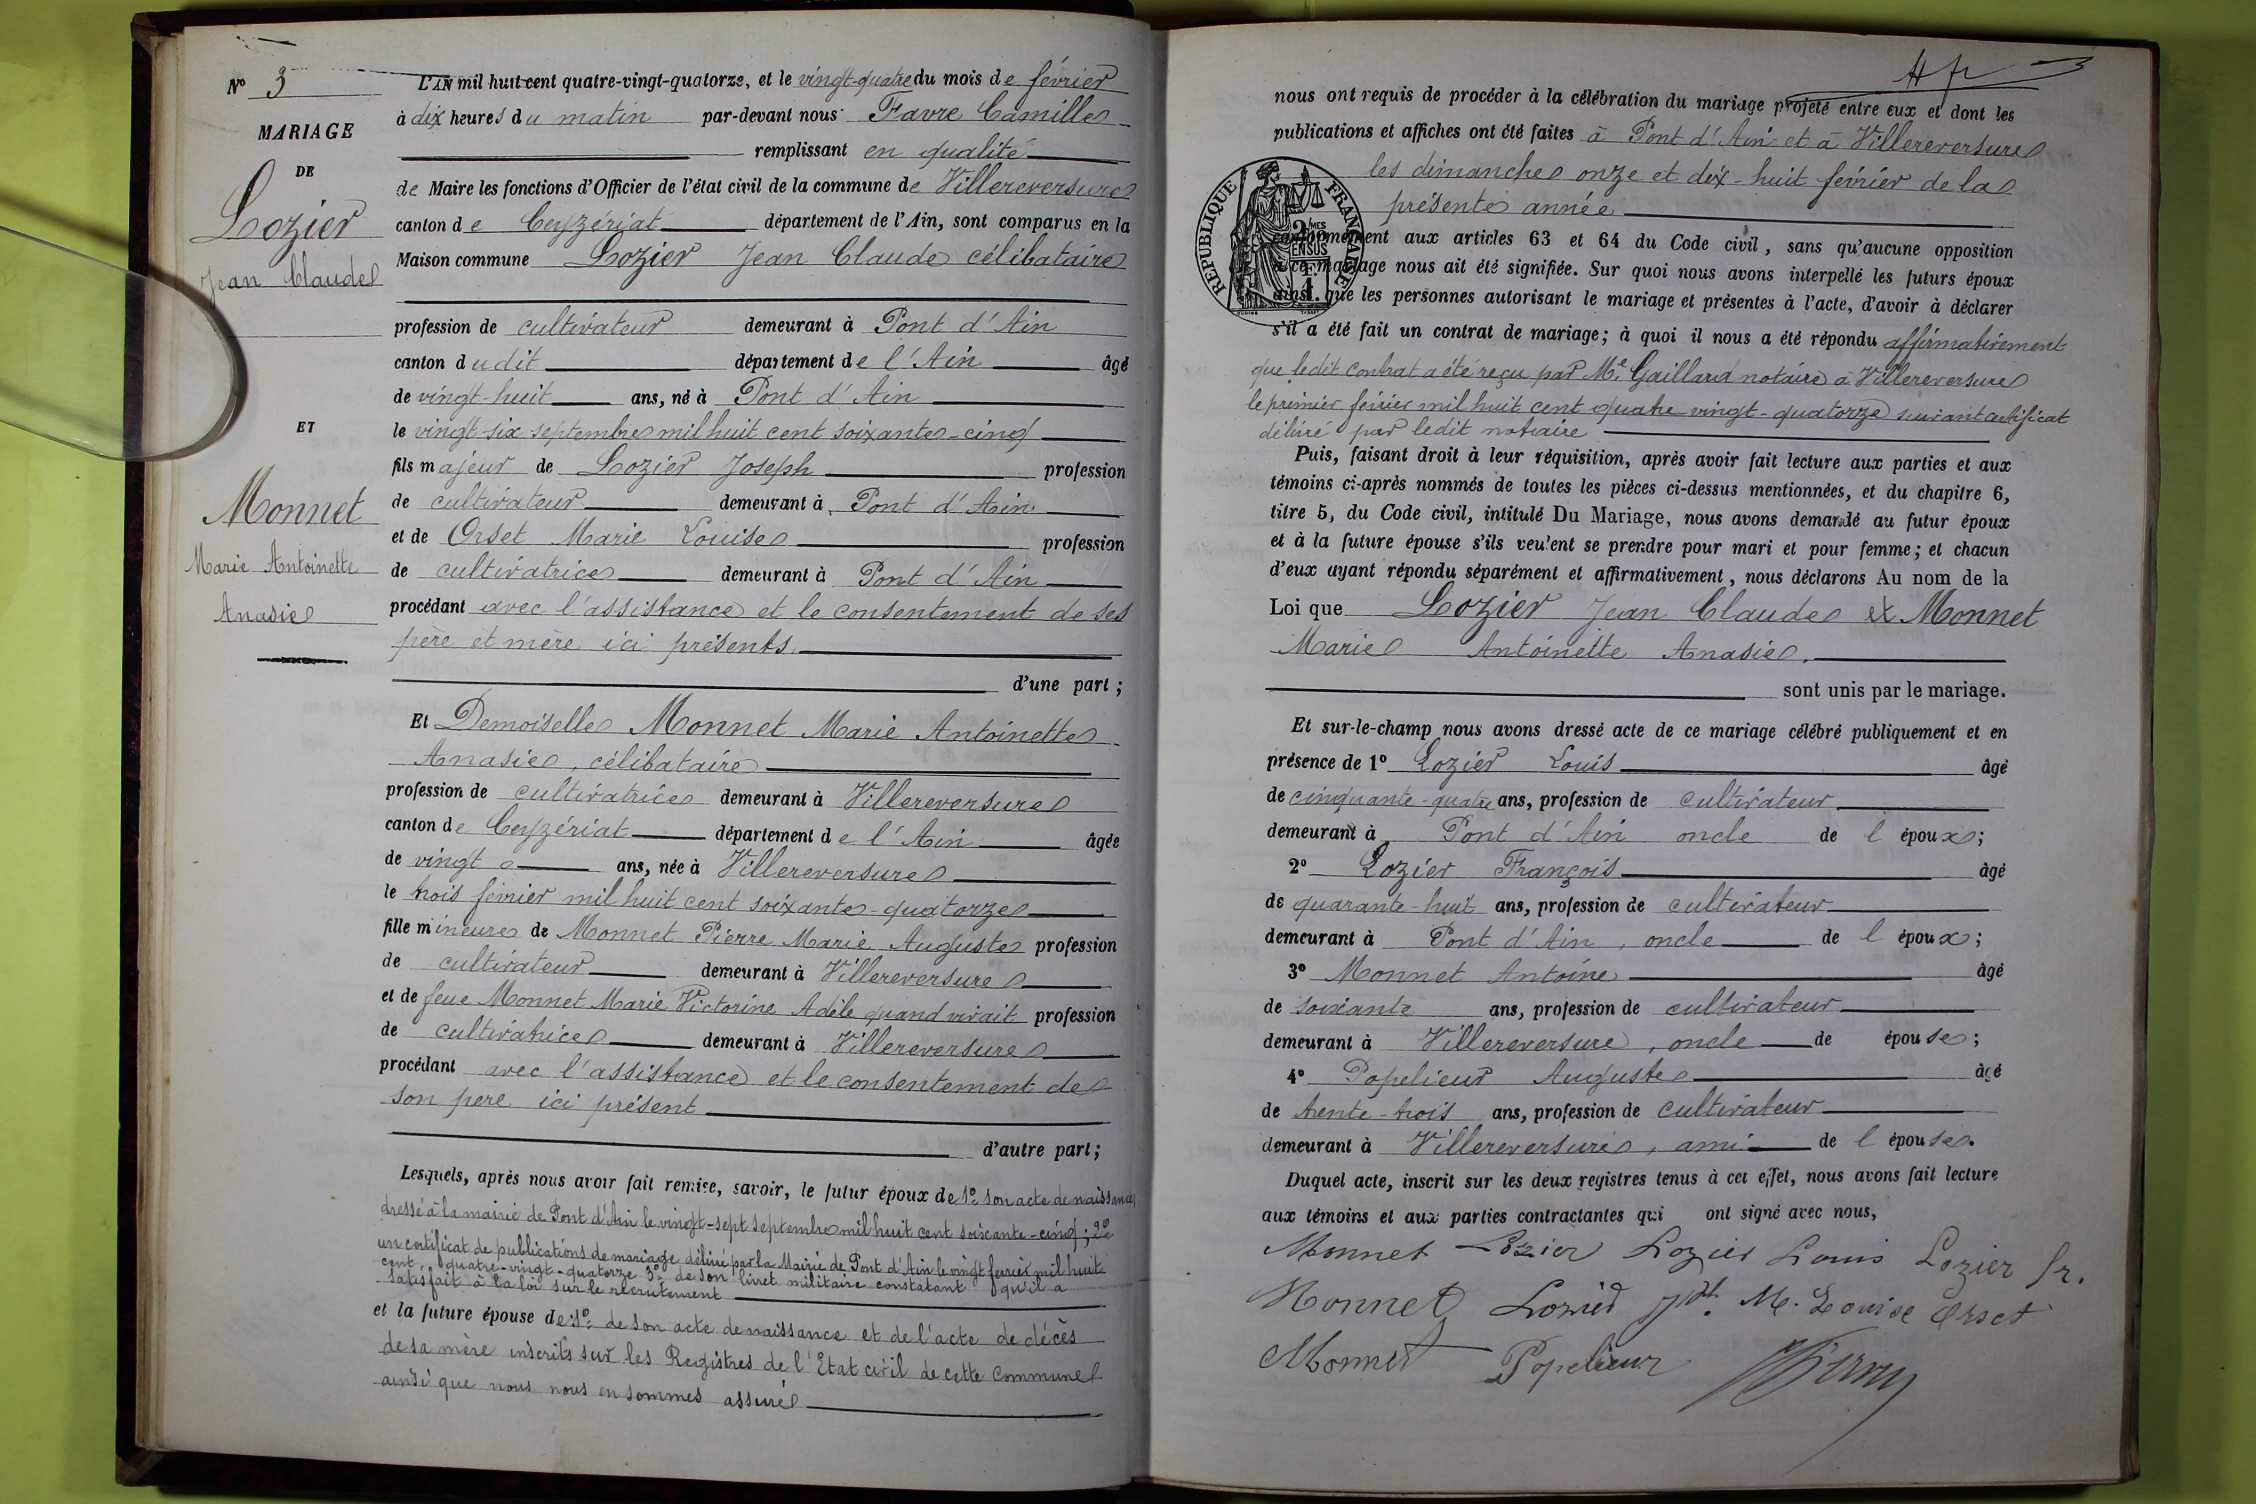 N° 3
MARIAGE
DE
Lozier
Jean Claude
ET
Monnet
Marie Antoinette
Anasie
L'AN mil huit cent quatre-vingt-quatorze, et le vingt-quatre du mois de février
à dix heures du matin par-devant nous Favre Camille
remplissant en qualité
de Maire les fonctions d'Officier de l'état civil de la commune de Villereversure
canton de Ceyzériat département de l'Ain, sont comparus en la
Maison commune Lozier Jean Claude célibataire
profession de cultivateur demeurant à Pont d'Ain
canton dudit département de l'Ain âgé
de vingt-huit ans, né à Pont d'Ain
le vingt-six septembre mil huit cent soixante-cinq
fils majeur de Lozier Joseph profession
de cultivateur demeurant à Pont d'Ain
et de Orset Marie Louise profession
de cultivatrice demeurant à Pont d'Ain
procédant avec l'assistance et le consentement de ses
père et mère ici présents.
d'une part ;
Et Demoiselle Monnet Marie Antoinette
Anasie, célibataire
profession de cultivatrice demeurant à Villereversure
canton de Ceyzériat département de l'Ain âgée
de vingt ans, née à Villereversure
le trois février mil huit cent soixante-quatorze
fille mineure de Monnet Pierre Marie Auguste profession
de cultivateur demeurant à Villereversure
et de feue Monnet Marie Victorine Adèle quand vivait profession
de cultivatrice demeurant à Villereversure
procédant avec l'assistance et le consentement de
son père ici présent
d'autre part ;
Lesquels, après nous avoir fait remise, savoir, le futur époux de 1° son acte de naissance
dressé à la mairie de Pont d'Ain le vingt-sept septembre mil huit cent soixante-cinq ; 2°
un certificat de publications de mariage délivré par la Mairie de Pont d'Ain le vingt février mil huit
cent quatre-vingt-quatorze 3° de son livret militaire constatant qu'il a
satisfait à la loi sur le recrutement
et la future épouse de 1° de son acte de naissance et de l'acte de décès
de sa mère inscrits sur les Registres de l'Etat civil de cette Commune
ainsi que nous nous en sommes assuré
nous ont requis de procéder à la célébration du mariage projeté entre eux et dont les
publications et affiches ont été faites à Pont d'Ain et à Villereversure
les dimanches onze et dix-huit février de la
présente année
RÉPUBLIQUE FRANÇAISE
2/10MES EN SUS
1F.
conformément aux articles 63 et 64 du Code civil, sans qu'aucune opposition
à ce mariage nous ait été signifiée. Sur quoi nous avons interpellé les futurs époux
ainsi que les personnes autorisant le mariage et présentes à l'acte, d'avoir à déclarer
s'il a été fait un contrat de mariage ; à quoi il nous a été répondu affirmativement
que ledit contrat a été reçu par Me. Gaillard notaire à Villereversure
le premier février mil huit cent quatre vingt-quatorze suivant certificat
délivré par ledit notaire
Puis, faisant droit à leur réquisition, après avoir fait lecture aux parties et aux
témoins ci-après nommés de toutes les pièces ci-dessus mentionnées, et du chapitre 6,
titre 5, du Code civil, intitulé Du Mariage, nous avons demandé au futur époux
et à la future épouse s'ils veulent se prendre pour mari et pour femme ; et chacun
d'eux ayant répondu séparément et affirmativement, nous déclarons Au nom de la
Loi que Lozier Jean Claude et Monnet
Marie Antoinette Anasie.
sont unis par le mariage.
Et sur-le-champ nous avons dressé acte de ce mariage célébré publiquement et en
présence de 1° Lozier Louis âgé
de cinquante-quatre ans, profession de cultivateur
demeurant à Pont d'Ain oncle de l époux ;
2° Lozier François âgé
de quarante-huit ans, profession de cultivateur
demeurant à Pont d'Ain, oncle de l époux ;
3° Monnet Antoine âgé
de soixante ans, profession de cultivateur
demeurant à Villereversure, oncle de épouse ;
4° Popelieur Auguste âgé
de trente-trois ans, profession de cultivateur
demeurant à Villereversure, ami de l épouse.
Duquel acte, inscrit sur les deux registres tenus à cet effet, nous avons fait lecture
aux témoins et aux parties contractantes qui ont signé avec nous,
Monnet Lozier Lozier Louis Lozier fr.
Monnet Lozier Jh. M. Louise Orset
Monnet Popelieur